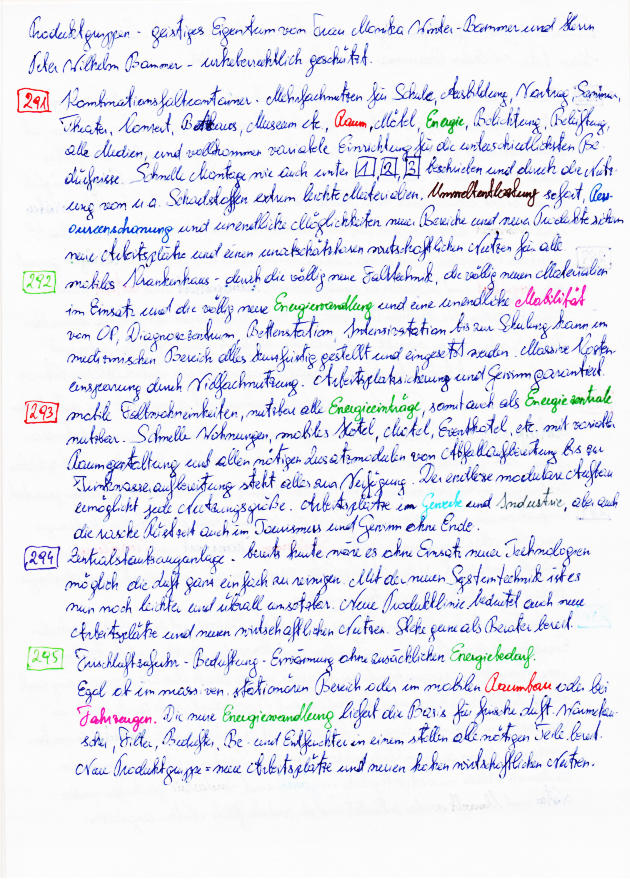 Produktgruppen - geistiges Eigentum von Frau Monika Winter-Bammer und Herrn
Peter Wilhelm Bammer - urheberrechtlich geschützt.
291 Kombinationsfaltcontainer. Mehrfachnutzen für Schule, Ausbildung, Vortrag, Seminar,
Theater, Konzert, Museum etc, Raum, Möbel, Energie, Belichtung, Belüftung,
alle Medien, und vollkommen variable Einrichtung für die unterschiedlichsten Be-
dürfnisse. Schnelle Montage wie auch unter 1, 2, 3 beschrieben und durch die Nutz-
ung von u.a. Schadstoffen extrem leichte Materialien. Umweltentlastung sofort, Res-
sourcenschonung und unendliche Möglichkeiten neuer Bereiche und neue Produkte sichern
neue Arbeitsplätze und einen unabschätzbaren wirtschaftlichen Nutzen für alle
292 mobiles Krankenhaus - durch die völlig neue Falttechnik, die völlig neuen Materialien
im Einsatz und die völlig neue Energiewandlung und eine unendliche Mobilität
von OP, Diagnosezentrum, Bettenstation, Intensivstation bis zur Schulung kann im
medizinischen Bereich alles kurzfristig gestellt und eingesetzt werden. Massive Kosten-
einsparung durch Vielfachnutzung. Arbeitsplatzsicherung und Gewinn garantiert.
293 mobile Faltwohneinheiten, nutzbar alle Energieeinträge, somit auch als Energiezentrale
nutzbar. Schnelle Wohnungen, mobiles Hotel, Möbel, Eventhotel, etc. mit variabler
Raumgestaltung und allen nötigen Zusatzmodulen von Abfallaufbereitung bis zur
Trinkwasseraufbereitung steht alles zur Verfügung. Der endlose modulare Aufbau
ermöglicht jede Nutzungsgröße. Arbeitsplätze im Gewerbe und Industrie, aber auch
die rasche Nutzzeit auch im Tourismus und Gewinn ohne Ende.
294 Zentralstaubsauganlage - bereits heute wäre es ohne Einsatz neuer Technologien
möglich die Luft ganz einfach zu reinigen. Mit der neuen Systemtechnik ist es
nun noch leichter und überall einsetzbar. Neue Produktlinie bedeutet auch neue
Arbeitsplätze und neuen wirtschaftlichen Nutzen. Stehe gerne als Berater bereit.
295 Frischluftzufuhr - Beduftung - Erwärmung ohne zusätzlichen Energiebedarf.
Egal ob im massiven, stationären Bereich oder im mobilen Raumbau oder bei
Fahrzeugen. Die neue Energiewandlung liefert die Basis für frische Luft. Wärmetau-
scher, Filter, Bedufter, Be- und Entfeuchter in einem stellen alle nötigen Teile bereit.
Neue Produktgruppe = neue Arbeitsplätze und neuen hohen wirtschaftlichen Nutzen.